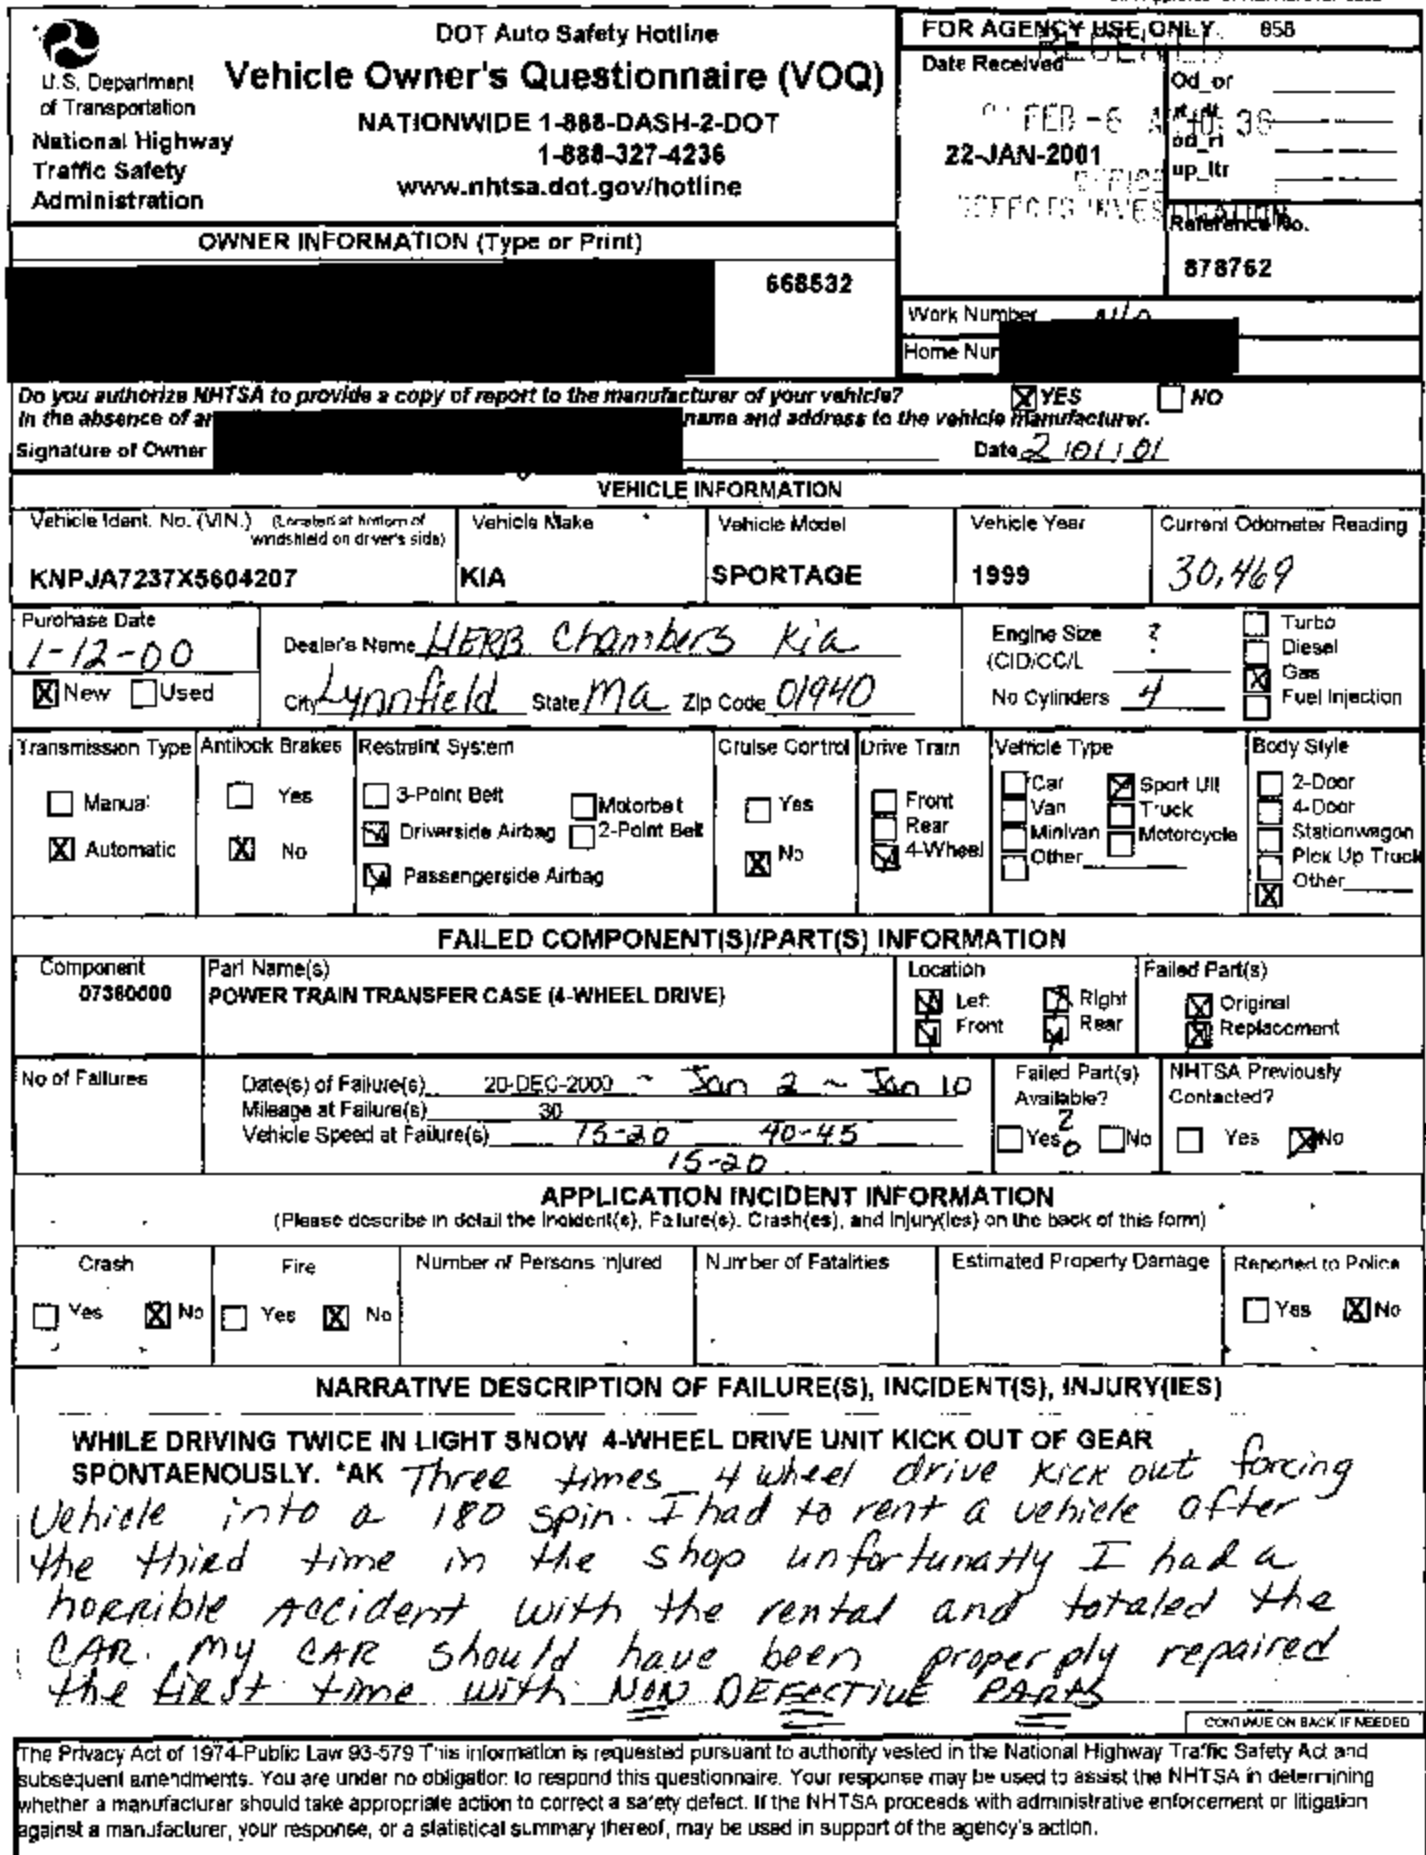 DOT Auto Safety Hotline
Vehicle Owner's Questionnaire (VOQ)
NATIONWIDE 1-888-DASH-2-DOT
1-888-327-4236
www.nhtsa.dot.gov/hotline
U.S. Department
of Transportation
National Highway
Traffic Safety
Administration
FOR AGENCY USE ONLY 858
Date Received
FEB -6
22-JAN-2001
Od_or
od_rt
up_ltr
Reference No.
878762
OWNER INFORMATION (Type or Print)
668532
Work Number
Home Nur
Do you authorize NHTSA to provide a copy of report to the manufacturer of your vehicle? YES NO
In the absence of an name and address to the vehicle manufacturer.
Signature of Owner Date 2/01/01
VEHICLE INFORMATION
Vehicle Ident. No. (VIN.) (Located at bottom of windshield on driver's side) Vehicle Make Vehicle Model Vehicle Year Current Odometer Reading
KNPJA7237X5604207 KIA SPORTAGE 1999 30,469
Purchase Date
1-12-00
New Used
Dealer's Name HERB Chambers Kia
City Lynnfield State Ma Zip Code 01940
Engine Size ?
(CID/CC/L
No Cylinders 4
Turbo
Diesel
Gas
Fuel Injection
Transmission Type
Manual
Automatic
Antilock Brakes
Yes
No
Restraint System
3-Point Belt
Driverside Airbag
Passengerside Airbag
Motorbelt
2-Point Belt
Cruise Control
Yes
No
Drive Train
Front
Rear
4-Wheel
Vehicle Type
Car
Van
Minivan
Other
Sport Util
Truck
Motorcycle
Body Style
2-Door
4-Door
Stationwagon
Pick Up Truck
Other
FAILED COMPONENT(S)/PART(S) INFORMATION
Component
07360000
Part Name(s)
POWER TRAIN TRANSFER CASE (4-WHEEL DRIVE)
Location
Left Right
Front Rear
Failed Part(s)
Original
Replacement
No of Failures
Date(s) of Failure(s) 20-DEC-2000 ~ Jan 2 ~ Jan 10
Mileage at Failure(s) 30
Vehicle Speed at Failure(s) 15-20 40-45
15-20
Failed Part(s)
Available?
Yes No
NHTSA Previously
Contacted?
Yes No
APPLICATION INCIDENT INFORMATION
(Please describe in detail the Incident(s), Failure(s), Crash(es), and Injury(ies) on the back of this form)
Crash
Yes No
Fire
Yes No
Number of Persons Injured
Number of Fatalities
Estimated Property Damage
Reported to Police
Yes No
NARRATIVE DESCRIPTION OF FAILURE(S), INCIDENT(S), INJURY(IES)
WHILE DRIVING TWICE IN LIGHT SNOW 4-WHEEL DRIVE UNIT KICK OUT OF GEAR
SPONTAENOUSLY. *AK Three times 4 wheel drive kick out forcing
Vehicle into a 180 spin. I had to rent a vehicle after
the third time in the shop unfortunatly I had a
horrible Accident with the rental and totaled the
CAR. My CAR should have been properply repaired
the first time with NON DEFECTIVE PARTS
CONTINUE ON BACK IF NEEDED
The Privacy Act of 1974-Public Law 93-579 This information is requested pursuant to authority vested in the National Highway Traffic Safety Act and
subsequent amendments. You are under no obligation to respond this questionnaire. Your response may be used to assist the NHTSA in determining
whether a manufacturer should take appropriate action to correct a safety defect. If the NHTSA proceeds with administrative enforcement or litigation
against a manufacturer, your response, or a statistical summary thereof, may be used in support of the agency's action.